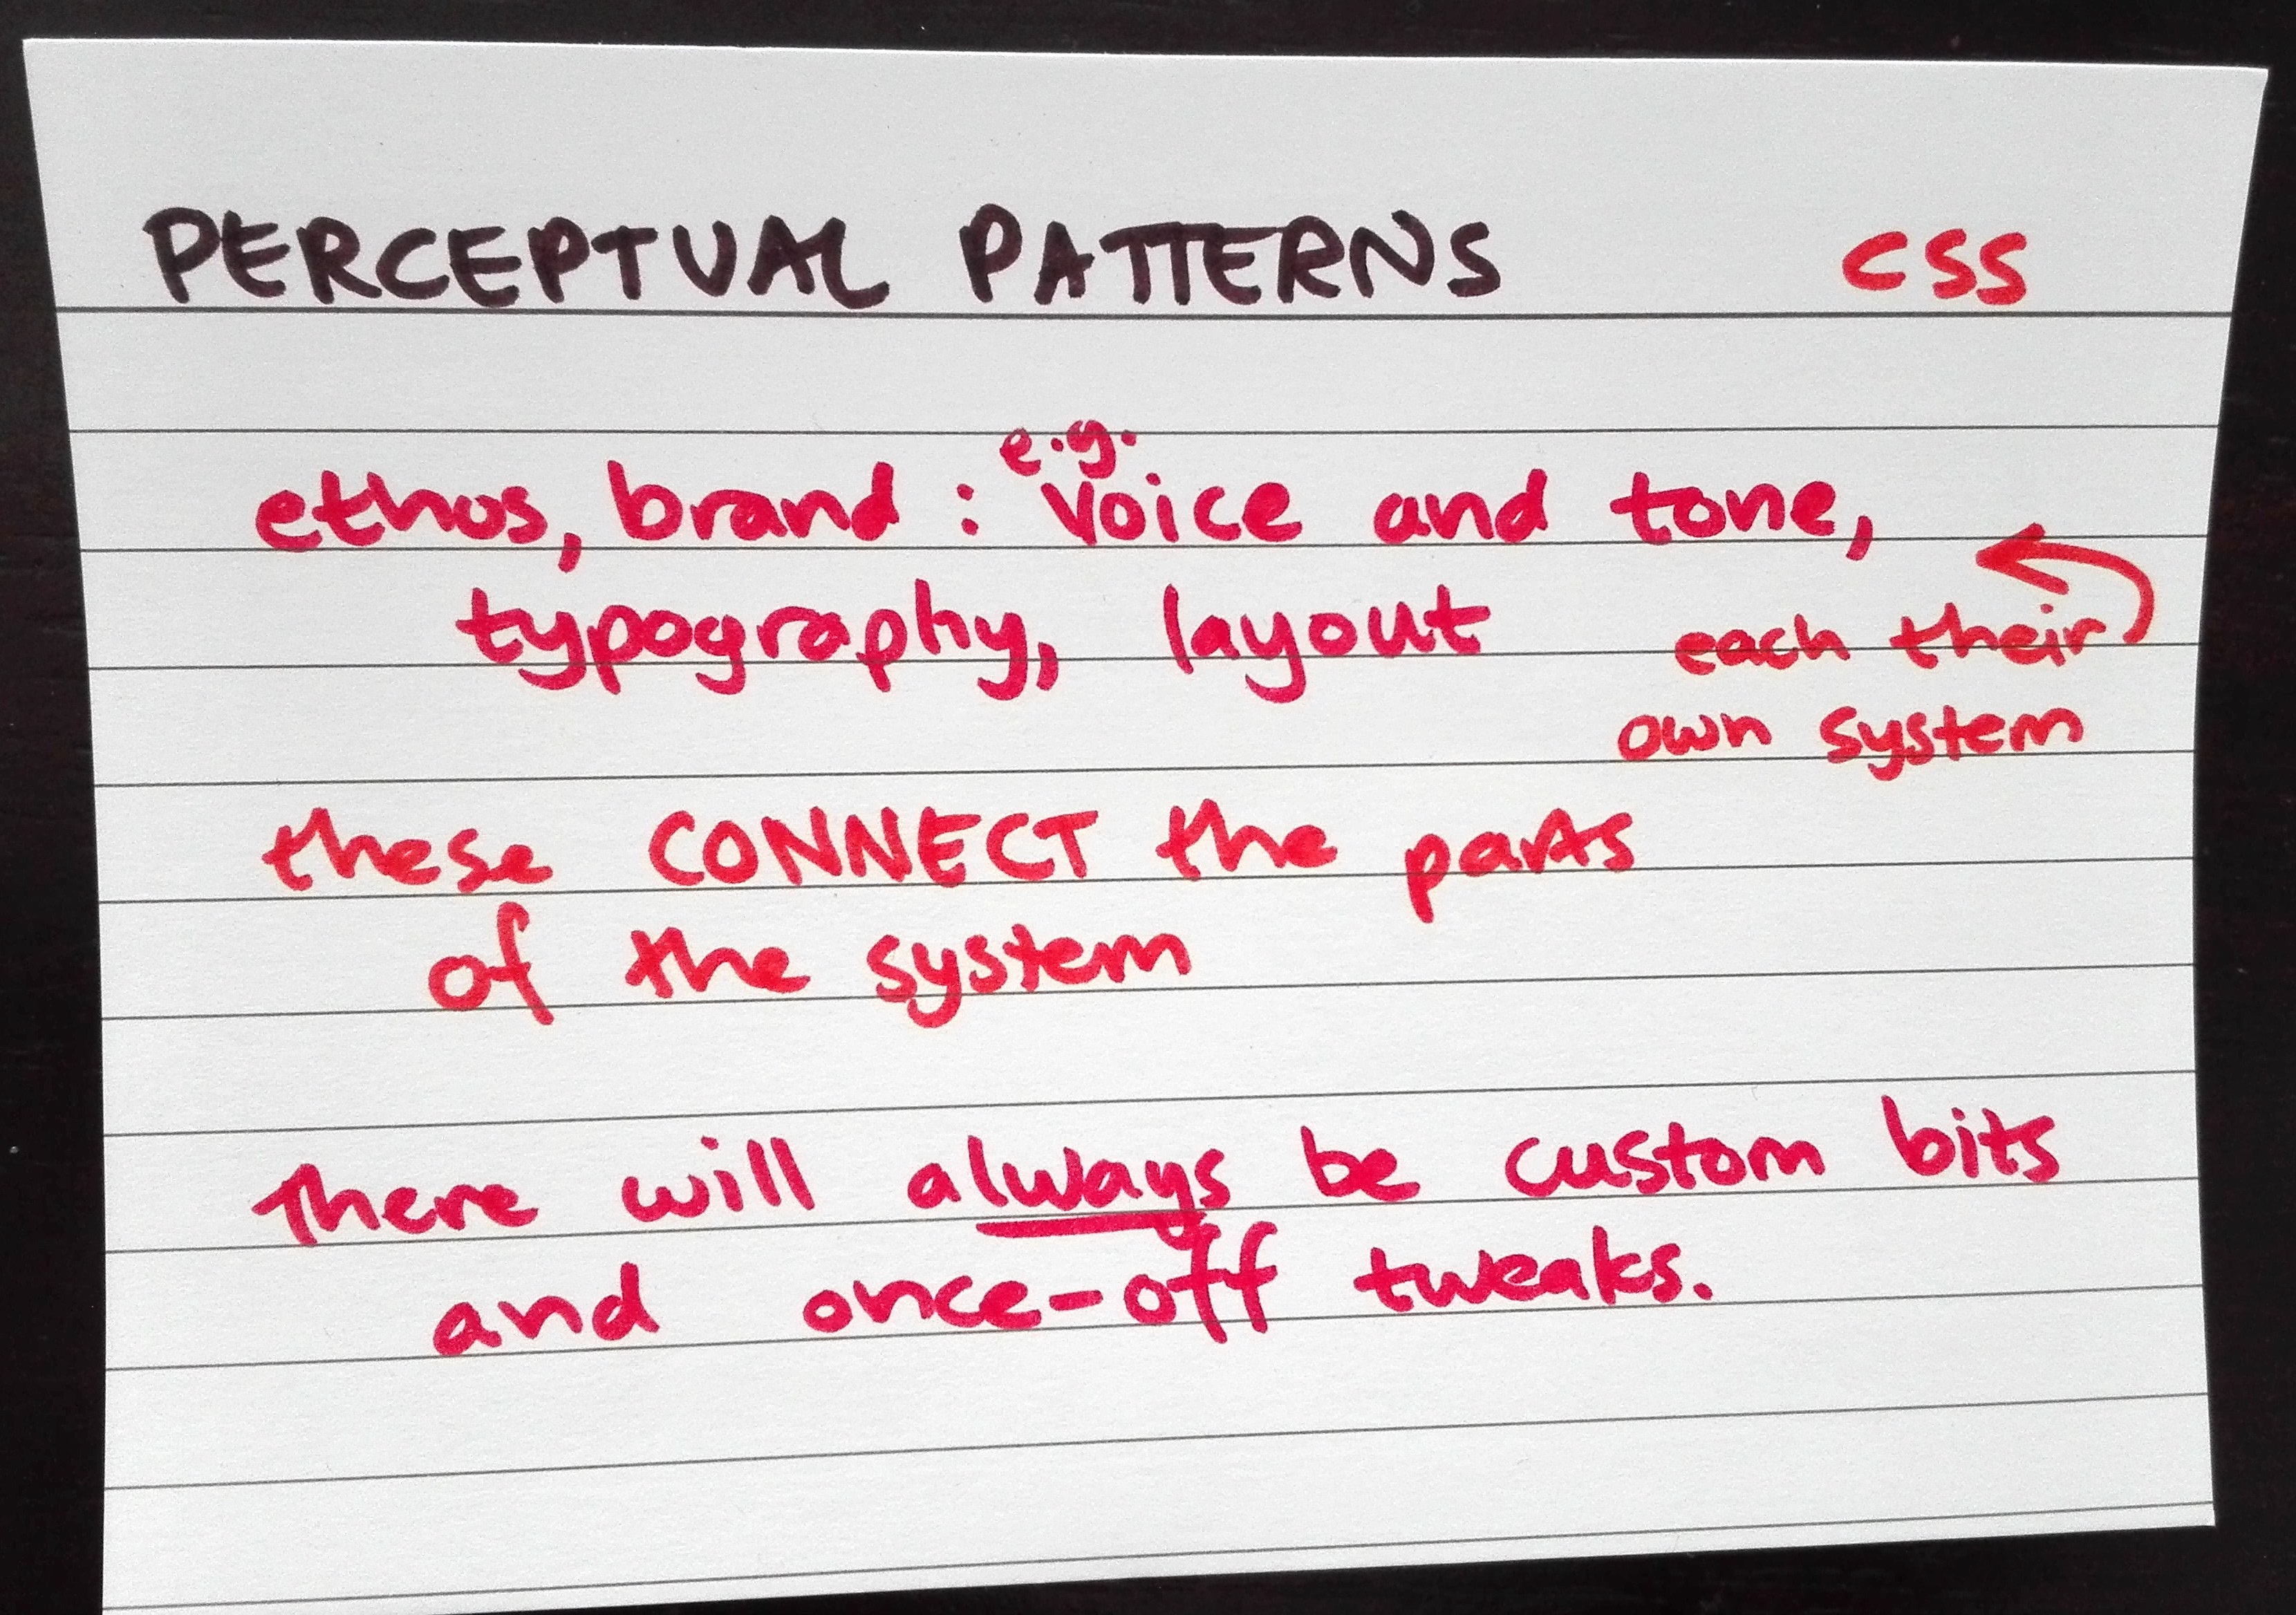 PERCEPTUAL PATTERNS CSS
e.g.
ethos, brand : voice and tone,
typography, layout
each their
own system
these CONNECT the parts
of the system
there will always be custom bits
and once-off tweaks.